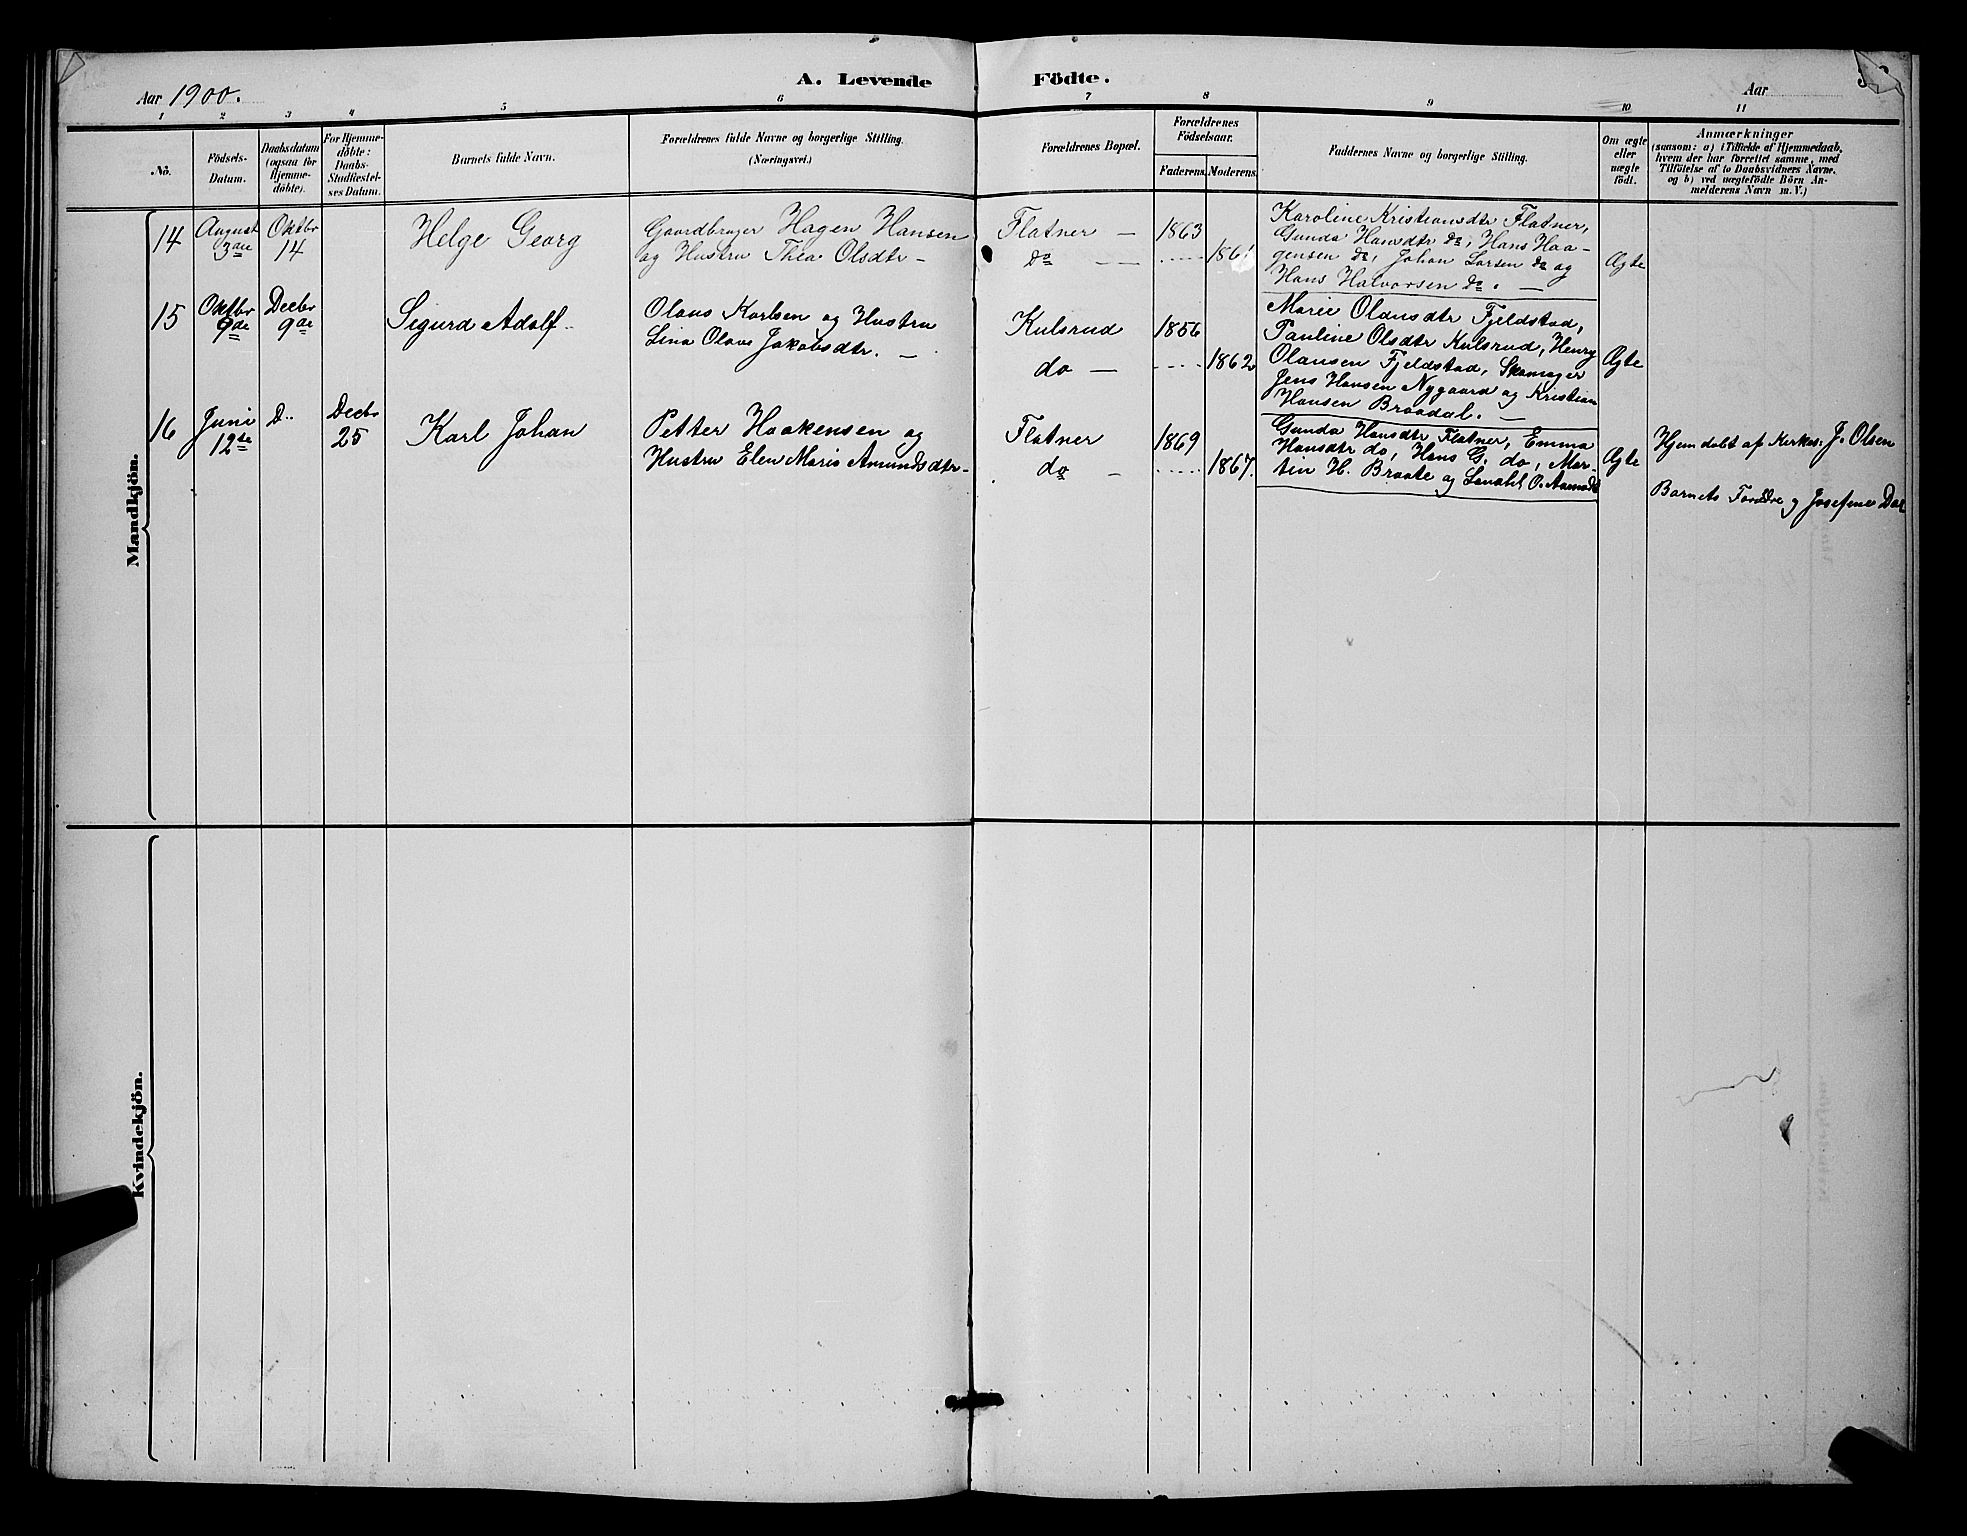 A. Levende Födte.
Aar 1900.
Aar
1 2 3 4 5 6 7 8 9 10 11
No.
Födsels-Datum.
Daabsdatum (ogsaa for Hjemme-döbte).
For Hjemme-döbte: Daabs-Stadfæstel-ses Datum.
Barnets fulde Navn.
Forældrenes fulde Navne og borgerlige Stilling.
(Næringsvei.)
Forældrenes Bopæl.
Forældrenes Födselsaar.
Faderens. Moderens.
Faddernes Navne og borgerlige Stilling.
Om ægte eller uægte födt.
Anmærkninger
(saasom: a) i Tilfælde af Hjemmedaab,
hvem der har forrettet samme, med
Tilföielse af to Daabsvidners Navne,
og b) ved uægtefödte Börn An-
melderens Navn m. V.)
Mandkjön.
14 August 3die Oktbr 14 Helge Georg
Gaardbruger Hagen Hansen
og Hustru Thea Olsdtr –
Flatner –
Do –
1863
1861
Karoline Kristiansdtr Flatner,
Gunda Hansdtr do, Hans Haa-
gensen do, Johan Larsen do og
Hans Halvorsen do. –
Ægte
15 Oktbr 9de Decbr 9de Sigurd Adolf
Olaus Karlsen og Hustru
Lina Olava Jakobsdtr. –
Kulsrud
do –
1856
1862
Marie Olausdtr Fjeldstad,
Pauline Olsdtr Kulsrud, Henry
Olausen Fjeldstad, Skomager
Jens Hansen Nygaard og Kristian
Hansen Braadal. –
Ægte
16 Juni 12te D. Decbr 25 Karl Johan
Petter Haakensen og
Hustru Elen Marie Amundsdtr –
Flatner
do –
1869
1867.
Gunda Hansdtr Flatner, Emma
Hansdtr do, Hans G. do, Mar-
tin H. Braate og O.
Ægte
Hjemdøbt af Kirkes. J. Olsen
Barnets Forældre og Josefine Dal
Kvindekjön.